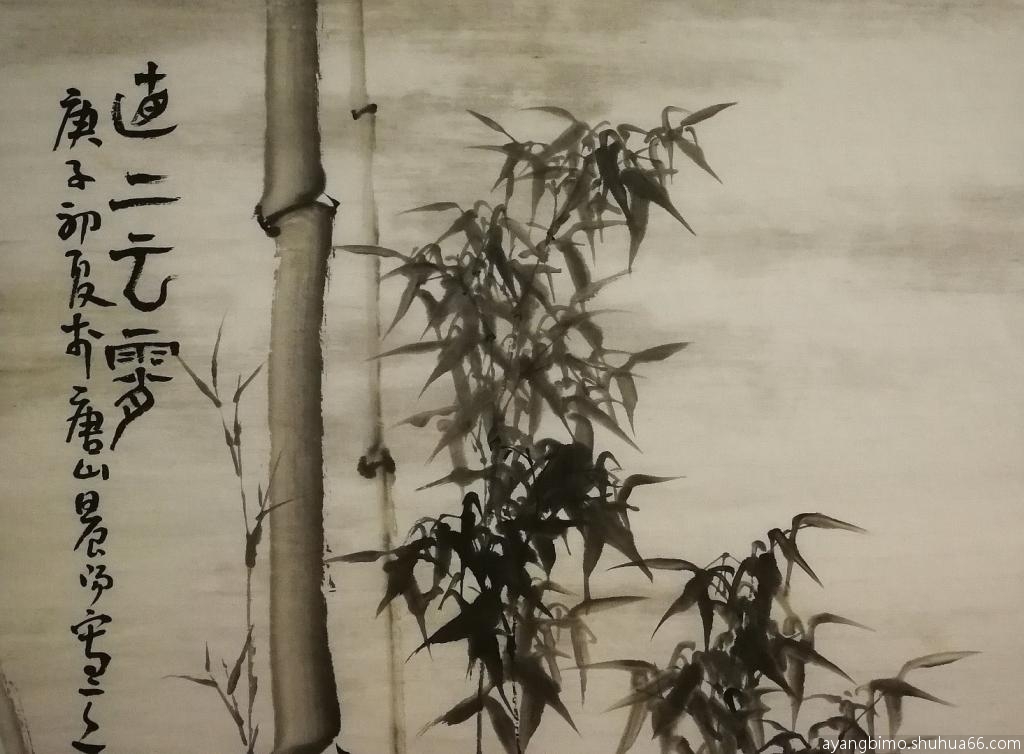 直上云霄
庚子初夏于唐山晨阳写之
ayangbimo.shuhua66.com